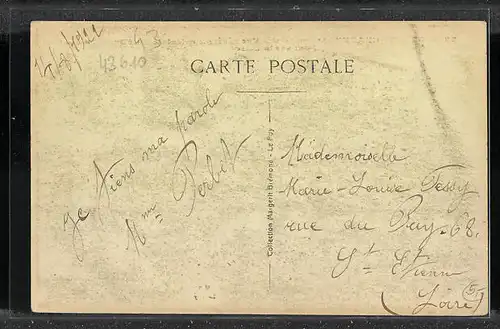 43
43610
CARTE POSTALE
Je tiens ma parole
Mme Perbet
Collection Margerit-Brémond - Le Puy
Mademoiselle
Marie-Louise Tessy
rue du Puy-68.
St Etienne
(Loire)